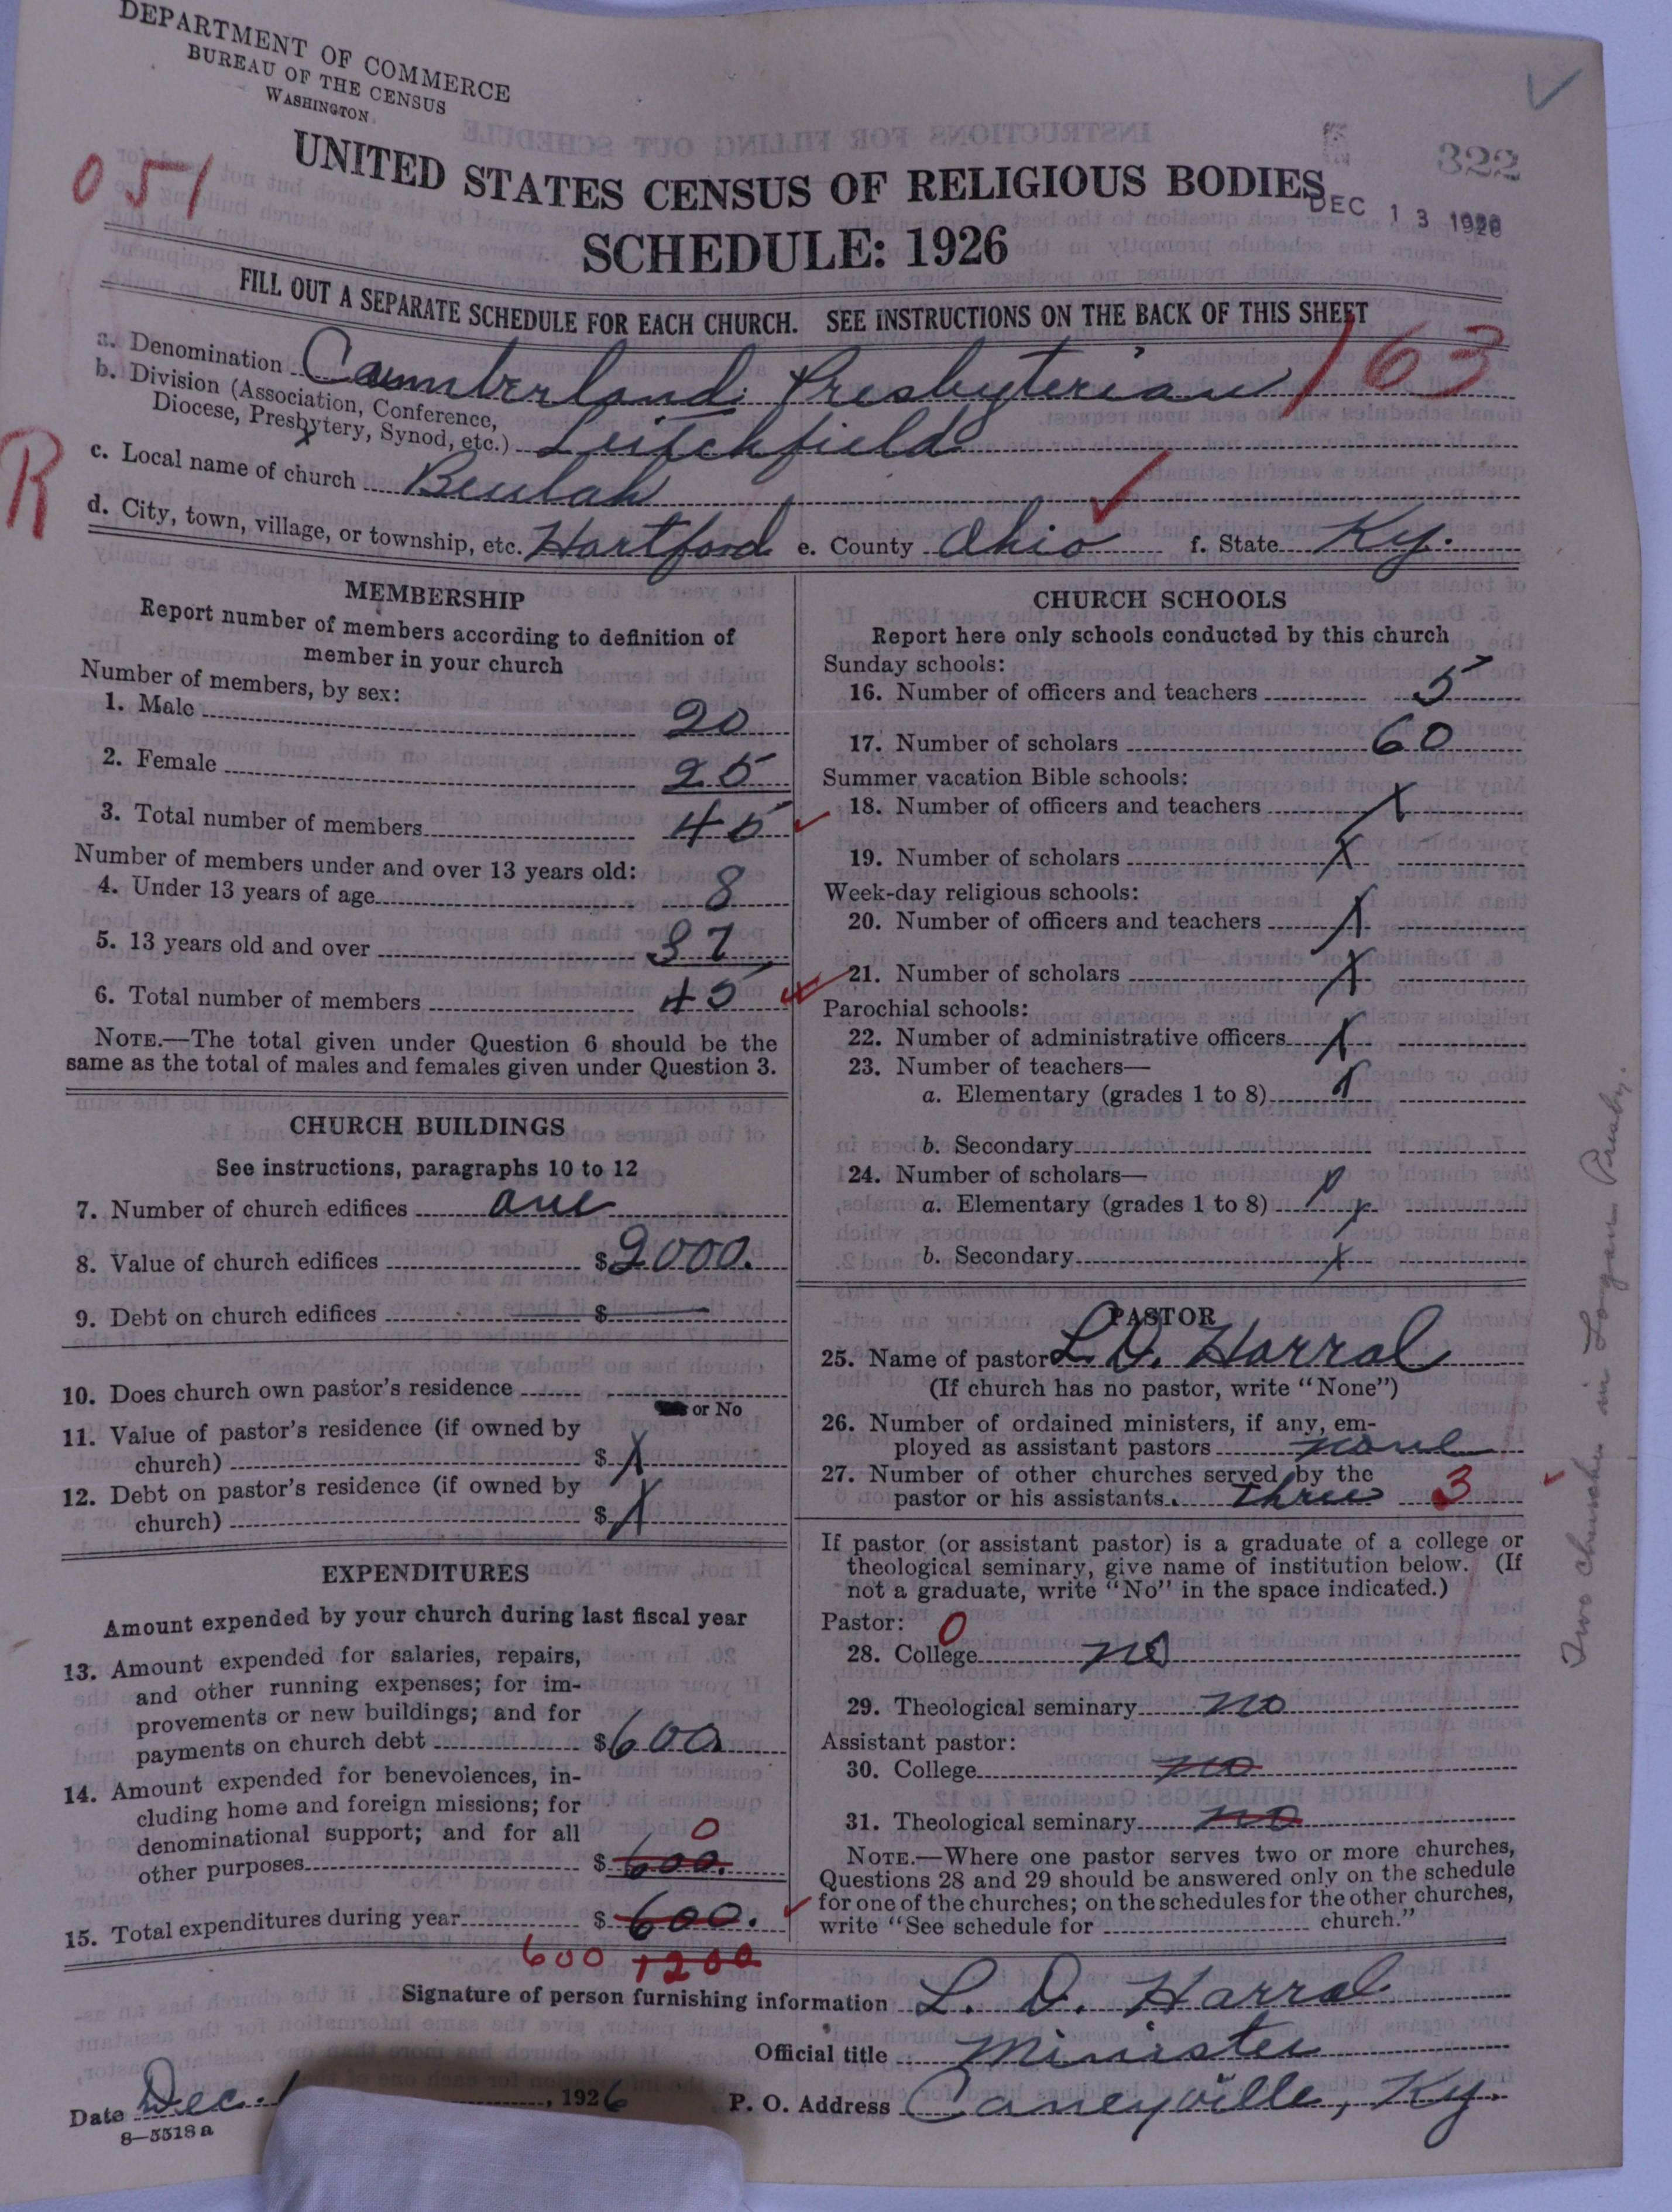 DEPARTMENT OF COMMERCE
BUREAU OF THE CENSUS
WASHINGTON
322
051
UNITED STATES CENSUS OF RELIGIOUS BODIES
DEC 13 1926
SCHEDULE: 1926
FILL OUT A SEPARATE SCHEDULE FOR EACH CHURCH. SEE INSTRUCTIONS ON THE BACK OF THIS SHEET
163
a. Denomination Cumberland Presbyterian
b. Division (Association, Conference,
Diocese, Presbytery, Synod, etc.) Leitchfield
R
c. Local name of church Beulah
d. City, town, village, or township, etc. Hartford e. County Ohio f. State Ky.
MEMBERSHIP
Report number of members according to definition of
member in your church
Number of members, by sex:
1. Male 20
2. Female 25
3. Total number of members 45
Number of members under and over 13 years old:
4. Under 13 years of age 8
5. 13 years old and over 37
6. Total number of members 45
NOTE.—The total given under Question 6 should be the
same as the total of males and females given under Question 3.
CHURCH BUILDINGS
See instructions, paragraphs 10 to 12
7. Number of church edifices one
8. Value of church edifices $2000.
9. Debt on church edifices $
10. Does church own pastor's residence
or No
11. Value of pastor's residence (if owned by
church) $ X
12. Debt on pastor's residence (if owned by
church) $ X
EXPENDITURES
Amount expended by your church during last fiscal year
13. Amount expended for salaries, repairs,
and other running expenses; for im-
provements or new buildings; and for
payments on church debt $600.
14. Amount expended for benevolences, in-
cluding home and foreign missions; for
denominational support; and for all 0
other purposes $600.
15. Total expenditures during year $600.
600 1200
CHURCH SCHOOLS
Report here only schools conducted by this church
Sunday schools:
16. Number of officers and teachers 5
17. Number of scholars 60
Summer vacation Bible schools:
18. Number of officers and teachers X
19. Number of scholars X
Week-day religious schools:
20. Number of officers and teachers X
21. Number of scholars X
Parochial schools:
22. Number of administrative officers X
23. Number of teachers—
a. Elementary (grades 1 to 8) X
b. Secondary
24. Number of scholars—
a. Elementary (grades 1 to 8) X
b. Secondary X
PASTOR
25. Name of pastor L. D. Harral
(If church has no pastor, write "None")
26. Number of ordained ministers, if any, em-
ployed as assistant pastors none
27. Number of other churches served by the
pastor or his assistants three 3
If pastor (or assistant pastor) is a graduate of a college or
theological seminary, give name of institution below. (If
not a graduate, write "No" in the space indicated.)
Pastor: 0
28. College no
29. Theological seminary no
Assistant pastor:
30. College no
31. Theological seminary no
NOTE.—Where one pastor serves two or more churches,
Questions 28 and 29 should be answered only on the schedule
for one of the churches; on the schedules for the other churches,
write "See schedule for church."
Two churches in Logan Presby.
Signature of person furnishing information L. D. Harral
Official title Minister
Date Dec. 1926 P. O. Address Caneyville, Ky.
8—5518 a